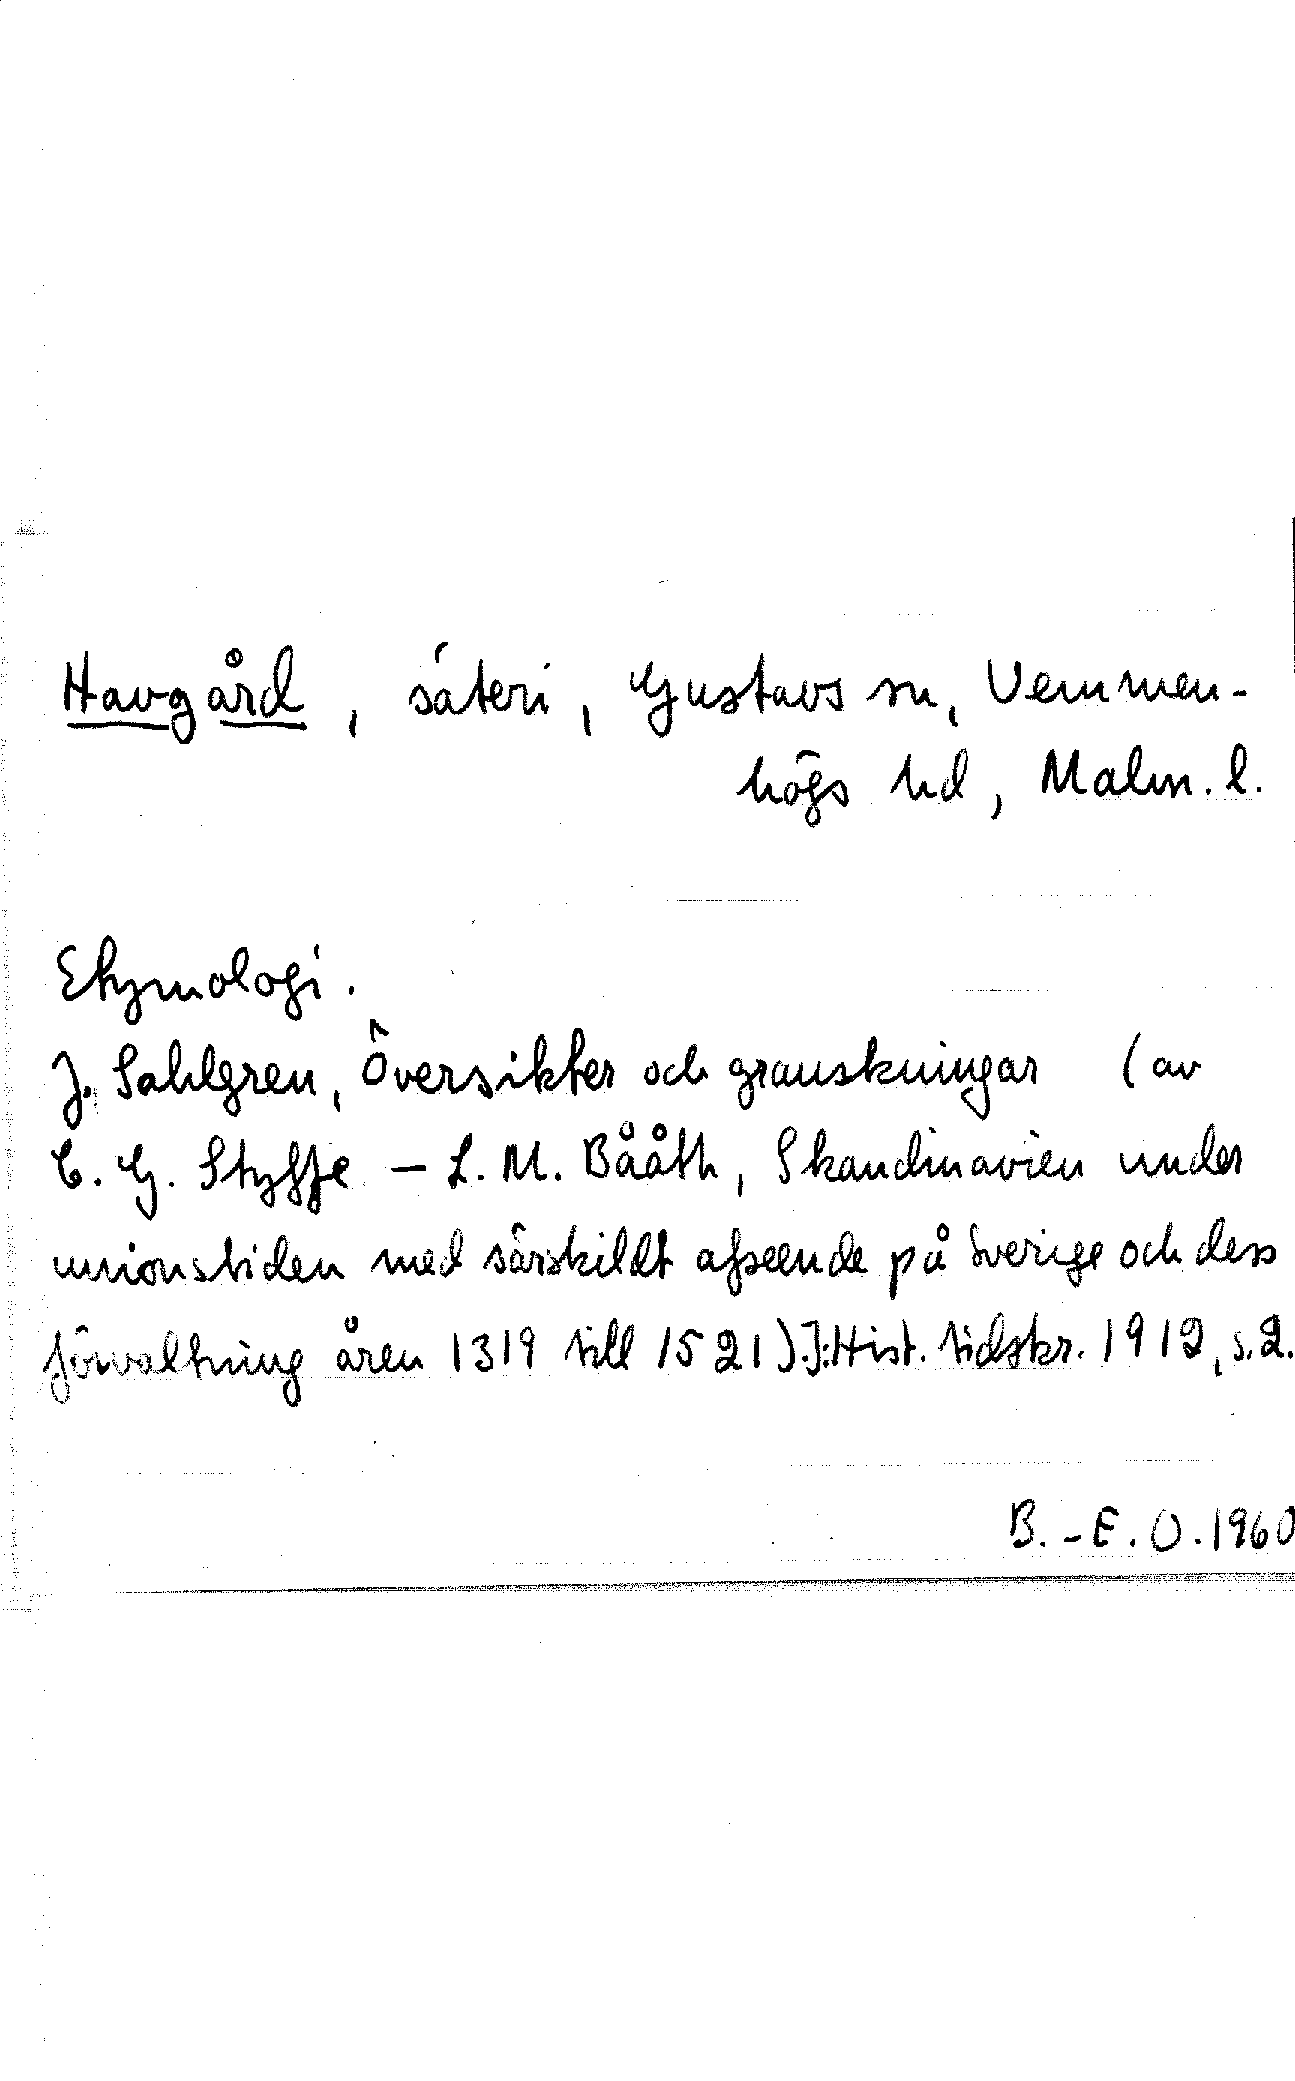 Havgård, säteri, Gustavs sn, Vemmen-
högs hd, Malm. l.
Etymologi.
J. Sahlgren, Översikter och granskningar (av
C. G. Styffe – L. M. Bååth, Skandinavien under
unionstiden med särskildt afseende på Sverige och dess
förvaltning åren 1319 till 1521). I: Hist. tidskr. 1912, s. 2.
B.-E. O. 1960